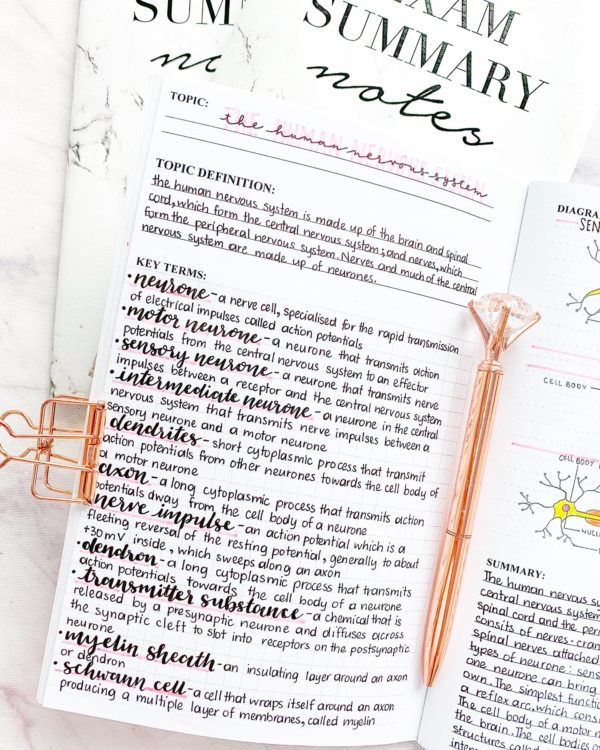 SUM
EXAM
SUMMARY
notes
TOPIC:
THE HUMAN NERVOUS SYSTEM
the human nervous system
TOPIC DEFINITION:
the human nervous system is made up of the brain and spinal
cord, which form the central nervous system; and nerves, which
form the peripheral nervous system. Nerves and much of the central
nervous system are made up of neurones.
KEY TERMS:
•neurone - a nerve cell, specialised for the rapid transmission
of electrical impulses called action potentials
•motor neurone - a neurone that transmits action
potentials from the central nervous system to an effector
•sensory neurone - a neurone that transmits nerve
impulses between a receptor and the central nervous system
•intermediate neurone - a neurone in the central
nervous system that transmits nerve impulses between a
sensory neurone and a motor neurone
•dendrites - short cytoplasmic process that transmit
action potentials from other neurones towards the cell body of
a motor neurone
•axon - a long cytoplasmic process that transmits action
potentials away from the cell body of a neurone
•nerve impulse - an action potential which is a
fleeting reversal of the resting potential, generally to about
+30mV inside, which sweeps along an axon
•dendron - a long cytoplasmic process that transmits
action potentials towards the cell body of a neurone
•transmitter substance - a chemical that is
released by a presynaptic neurone and diffuses across
the synaptic cleft to slot into receptors on the postsynaptic
neurone
•myelin sheath - an insulating layer around an axon
or dendron
•schwann cell - a cell that wraps itself around an axon
producing a multiple layer of membranes, called myelin
DIAGRA
SEN
CELL BODY
CELL BODY
NUCL
SUMMARY:
The human nervous su
central nervous system
spinal cord and the per
consits of nerves - cran
spinal nerves attached
types of neurone: sens
one neurone can bring
own. The simplest function
a reflex arc, which cons
The cell body of a motor n
the brain. The cell bodies
structures called
inter